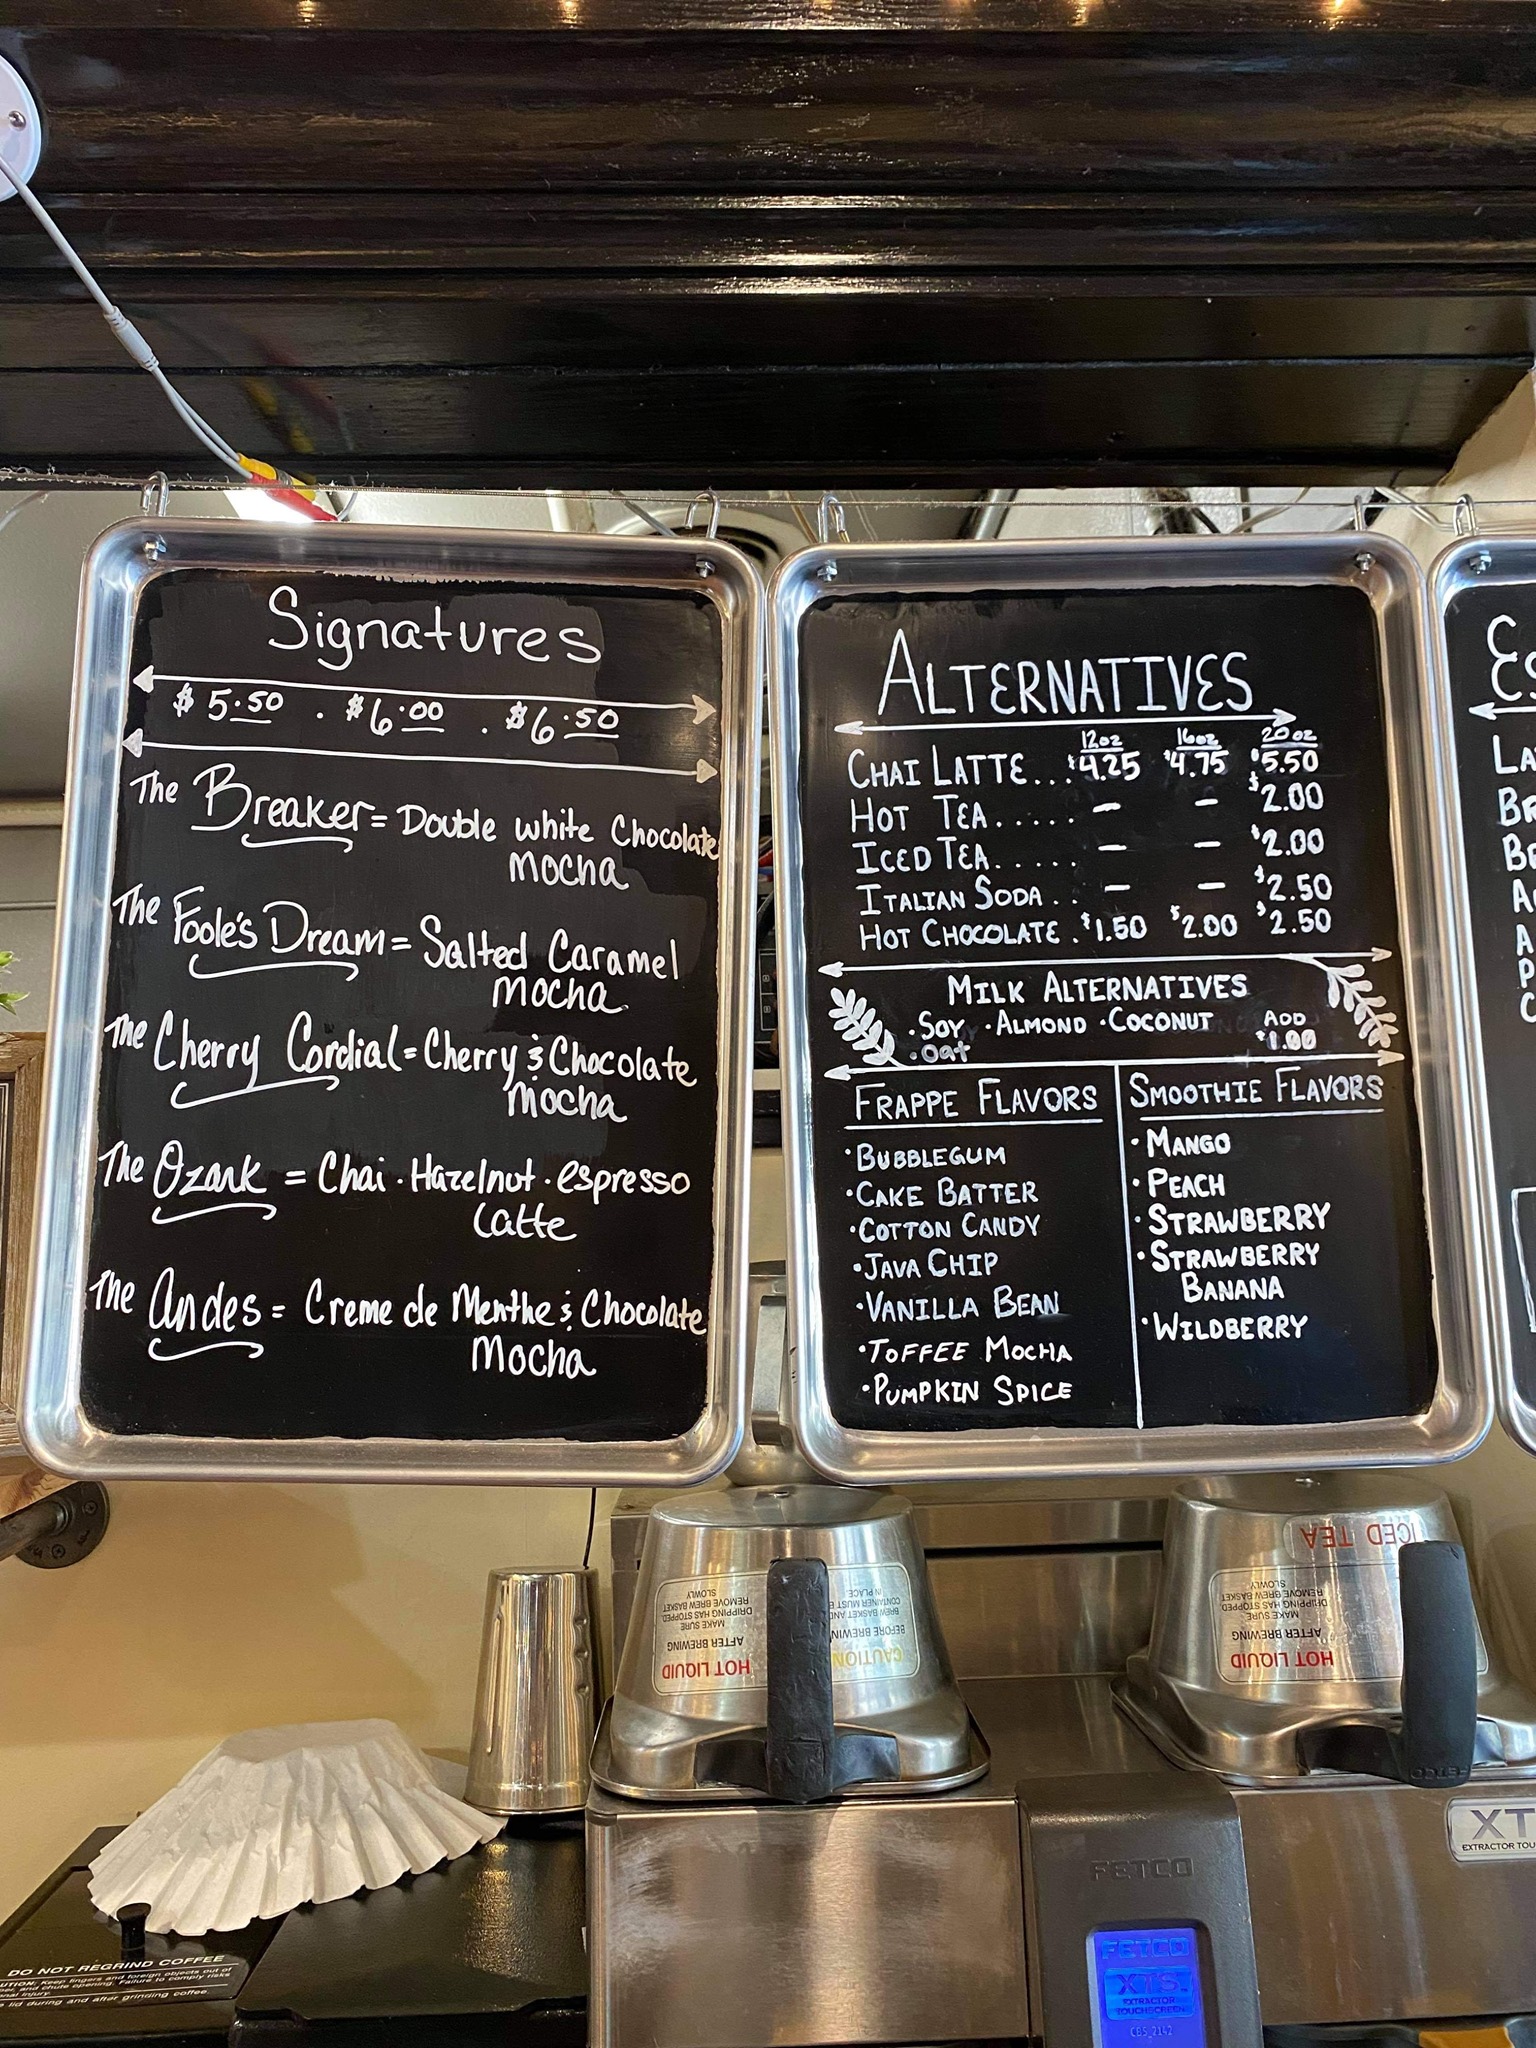 Signatures
$5.50 . $6.00 . $6.50
The Breaker = Double white Chocolate
Mocha
The Foole's Dream = Salted Caramel
Mocha
The Cherry Cordial = Cherry & Chocolate
Mocha
The Ozark = Chai · Hazelnut · espresso
Latte
The Andes = Creme de Menthe & Chocolate
Mocha
ALTERNATIVES
12oz 16oz 20oz
CHAI LATTE... $4.25 $4.75 $5.50
HOT TEA..... – – $2.00
ICED TEA..... – – $2.00
ITALIAN SODA.. – – $2.50
HOT CHOCOLATE. $1.50 $2.00 $2.50
MILK ALTERNATIVES
· SOY · ALMOND · COCONUT ADD
· Oat $1.00
FRAPPE FLAVORS
· BUBBLEGUM
· CAKE BATTER
· COTTON CANDY
· JAVA CHIP
· VANILLA BEAN
· TOFFEE MOCHA
· PUMPKIN SPICE
SMOOTHIE FLAVORS
· MANGO
· PEACH
· STRAWBERRY
· STRAWBERRY
BANANA
· WILDBERRY
LA
BR
A
P
HOT LIQUID
AFTER BREWING
MAKE SURE
DRIPPING HAS STOPPED.
REMOVE BREW BASKET
SLOWLY
CAUTION
BEFORE BREWIN
BREW BASKET AND
CONTAINER MUST B
IN PLACE
ICED TEA
HOT LIQUID
AFTER BREWING
MAKE SURE
DRIPPING HAS STOPPED.
REMOVE BREW BASKET
SLOWLY
FETCO
XT
EXTRACTOR TOU
FETCO
FETCO
XTS
EXTRACTOR
TOUCHSCREEN
CBS_2142
DO NOT REGRIND COFFEE
UTION: Keep fingers and foreign objects out of
per, and chute opening. Failure to comply risks
onal injury.
e lid during and after grinding coffee.